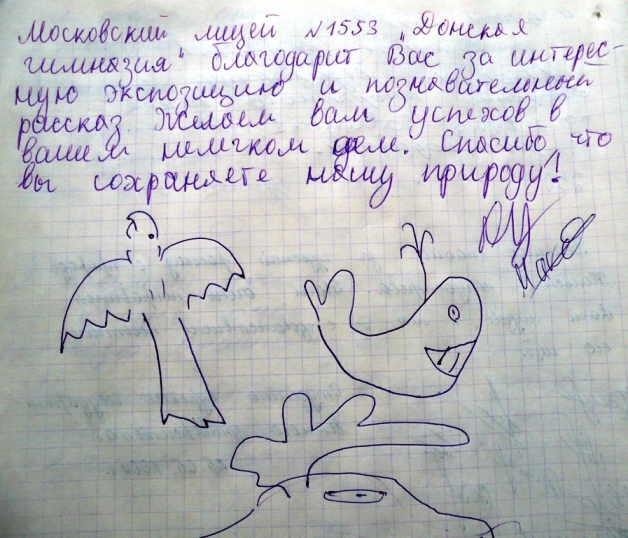 Московский лицей №1553 "Донская
гимназия" благодарит Вас за интерес-
ную экспозицию и познавательный
рассказ. Желаем вам успехов в
вашем нелегком деле. Спасибо, что
вы сохраняете нашу природу!